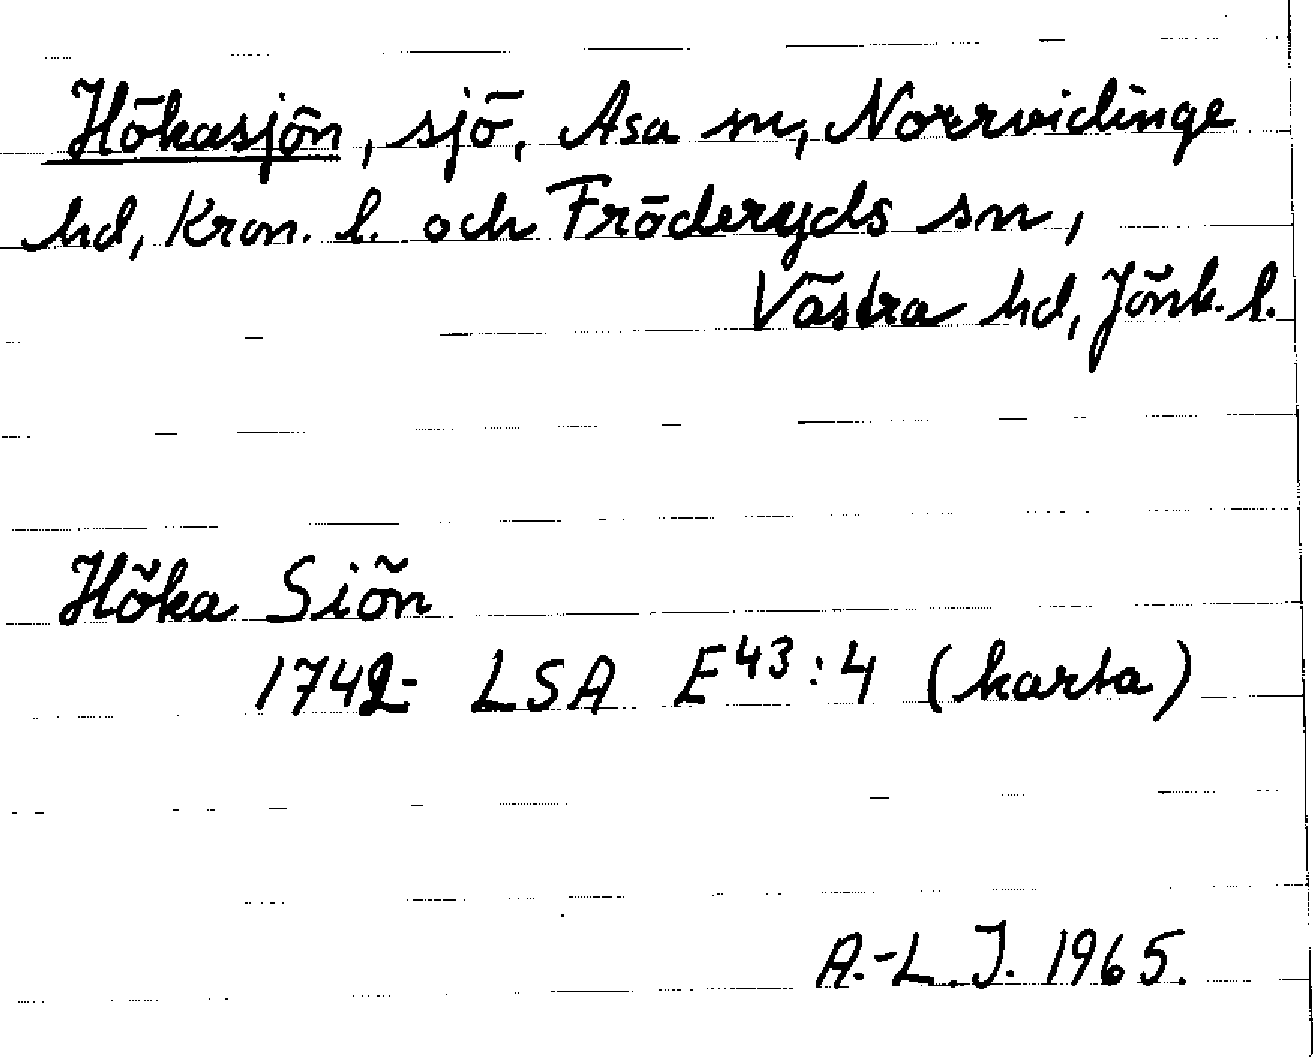 Hökasjön, sjö, Asa sn, Norrvidinge
hd, Kron. l. och Fröderyds sn,
Västra hd, Jönk. l.
Höka Siön
1742 LSA E43:4 (karta)
A.-L. J. 1965.